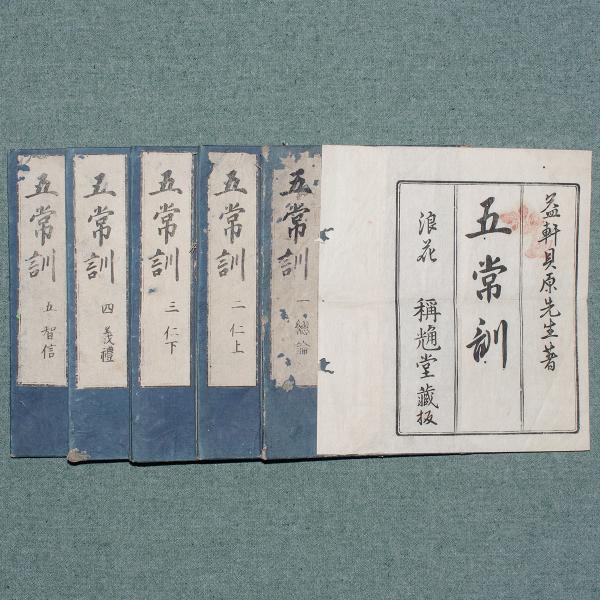 益軒貝原先生著
五常訓
浪花 稱䚹堂藏板
五常訓
一 總論
五常訓
二 仁上
五常訓
三 仁下
五常訓
四 義禮
五常訓
五 智信